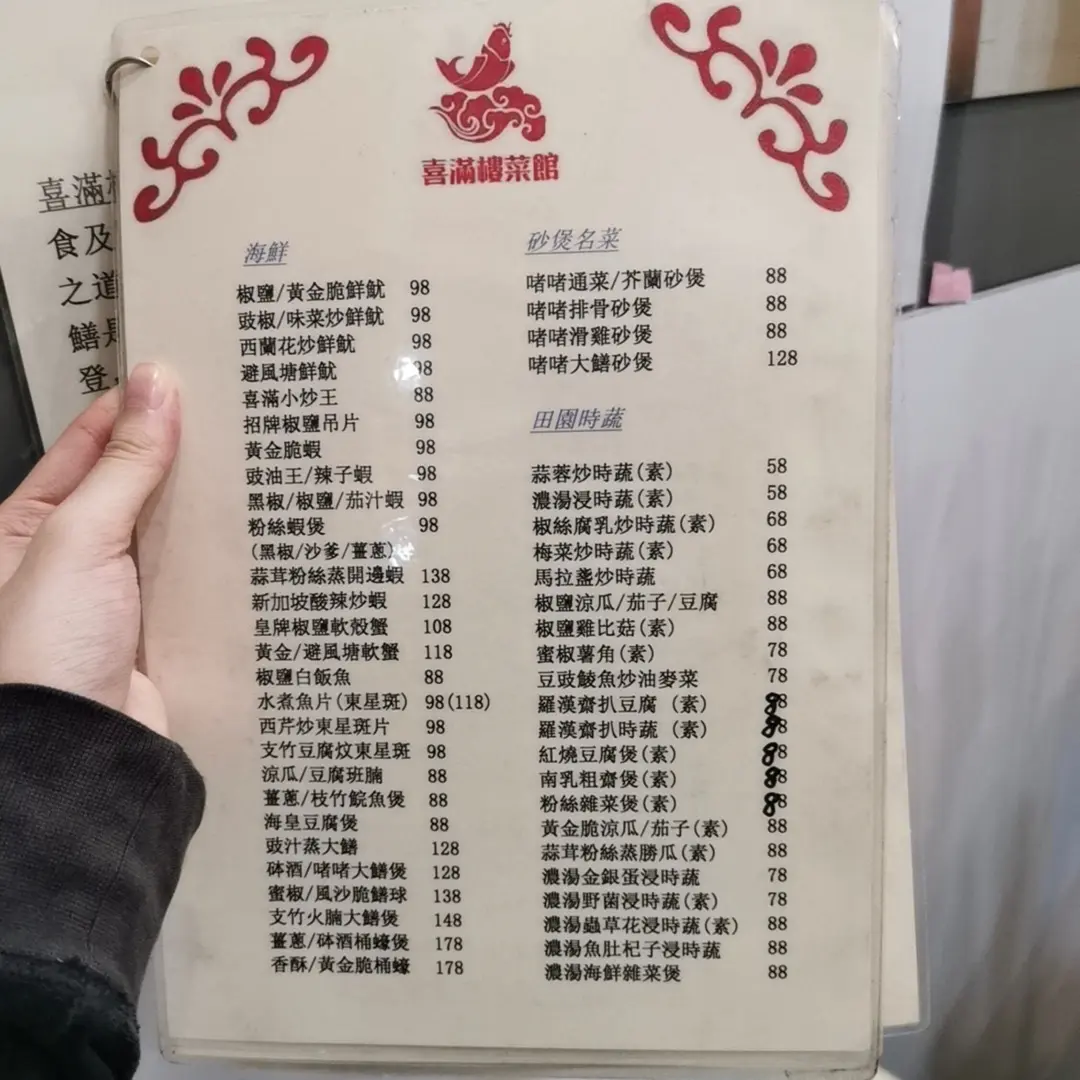 喜滿樓菜館
喜滿
食及
之道
鱔是
登
海鮮
椒鹽/黃金脆鮮魷 98
豉椒/味菜炒鮮魷 98
西蘭花炒鮮魷 98
避風塘鮮魷 98
喜滿小炒王 88
招牌椒鹽吊片 98
黃金脆蝦 98
豉油王/辣子蝦 98
黑椒/椒鹽/茄汁蝦 98
粉絲蝦煲 98
(黑椒/沙爹/薑蔥)
蒜茸粉絲蒸開邊蝦 138
新加坡酸辣炒蝦 128
皇牌椒鹽軟殼蟹 108
黃金/避風塘軟蟹 118
椒鹽白飯魚 88
水煮魚片(東星斑) 98(118)
西芹炒東星斑片 98
支竹豆腐炆東星斑 98
涼瓜/豆腐班腩 88
薑蔥/枝竹鯇魚煲 88
海皇豆腐煲 88
豉汁蒸大鱔 128
砵酒/啫啫大鱔煲 128
蜜椒/風沙脆鱔球 138
支竹火腩大鱔煲 148
薑蔥/砵酒桶蠔煲 178
香酥/黃金脆桶蠔 178
砂煲名菜
啫啫通菜/芥蘭砂煲 88
啫啫排骨砂煲 88
啫啫滑雞砂煲 88
啫啫大鱔砂煲 128
田園時蔬
蒜蓉炒時蔬(素) 58
濃湯浸時蔬(素) 58
椒絲腐乳炒時蔬(素) 68
梅菜炒時蔬(素) 68
馬拉盞炒時蔬 68
椒鹽涼瓜/茄子/豆腐 88
椒鹽雞比菇(素) 88
蜜椒薯角(素) 78
豆豉鯪魚炒油麥菜 78
羅漢齋扒豆腐 (素) 88
羅漢齋扒時蔬 (素) 88
紅燒豆腐煲(素) 88
南乳粗齋煲(素) 88
粉絲雜菜煲(素) 88
黃金脆涼瓜/茄子(素) 88
蒜茸粉絲蒸勝瓜(素) 88
濃湯金銀蛋浸時蔬 78
濃湯野菌浸時蔬(素) 78
濃湯蟲草花浸時蔬(素) 88
濃湯魚肚杞子浸時蔬 88
濃湯海鮮雜菜煲 88